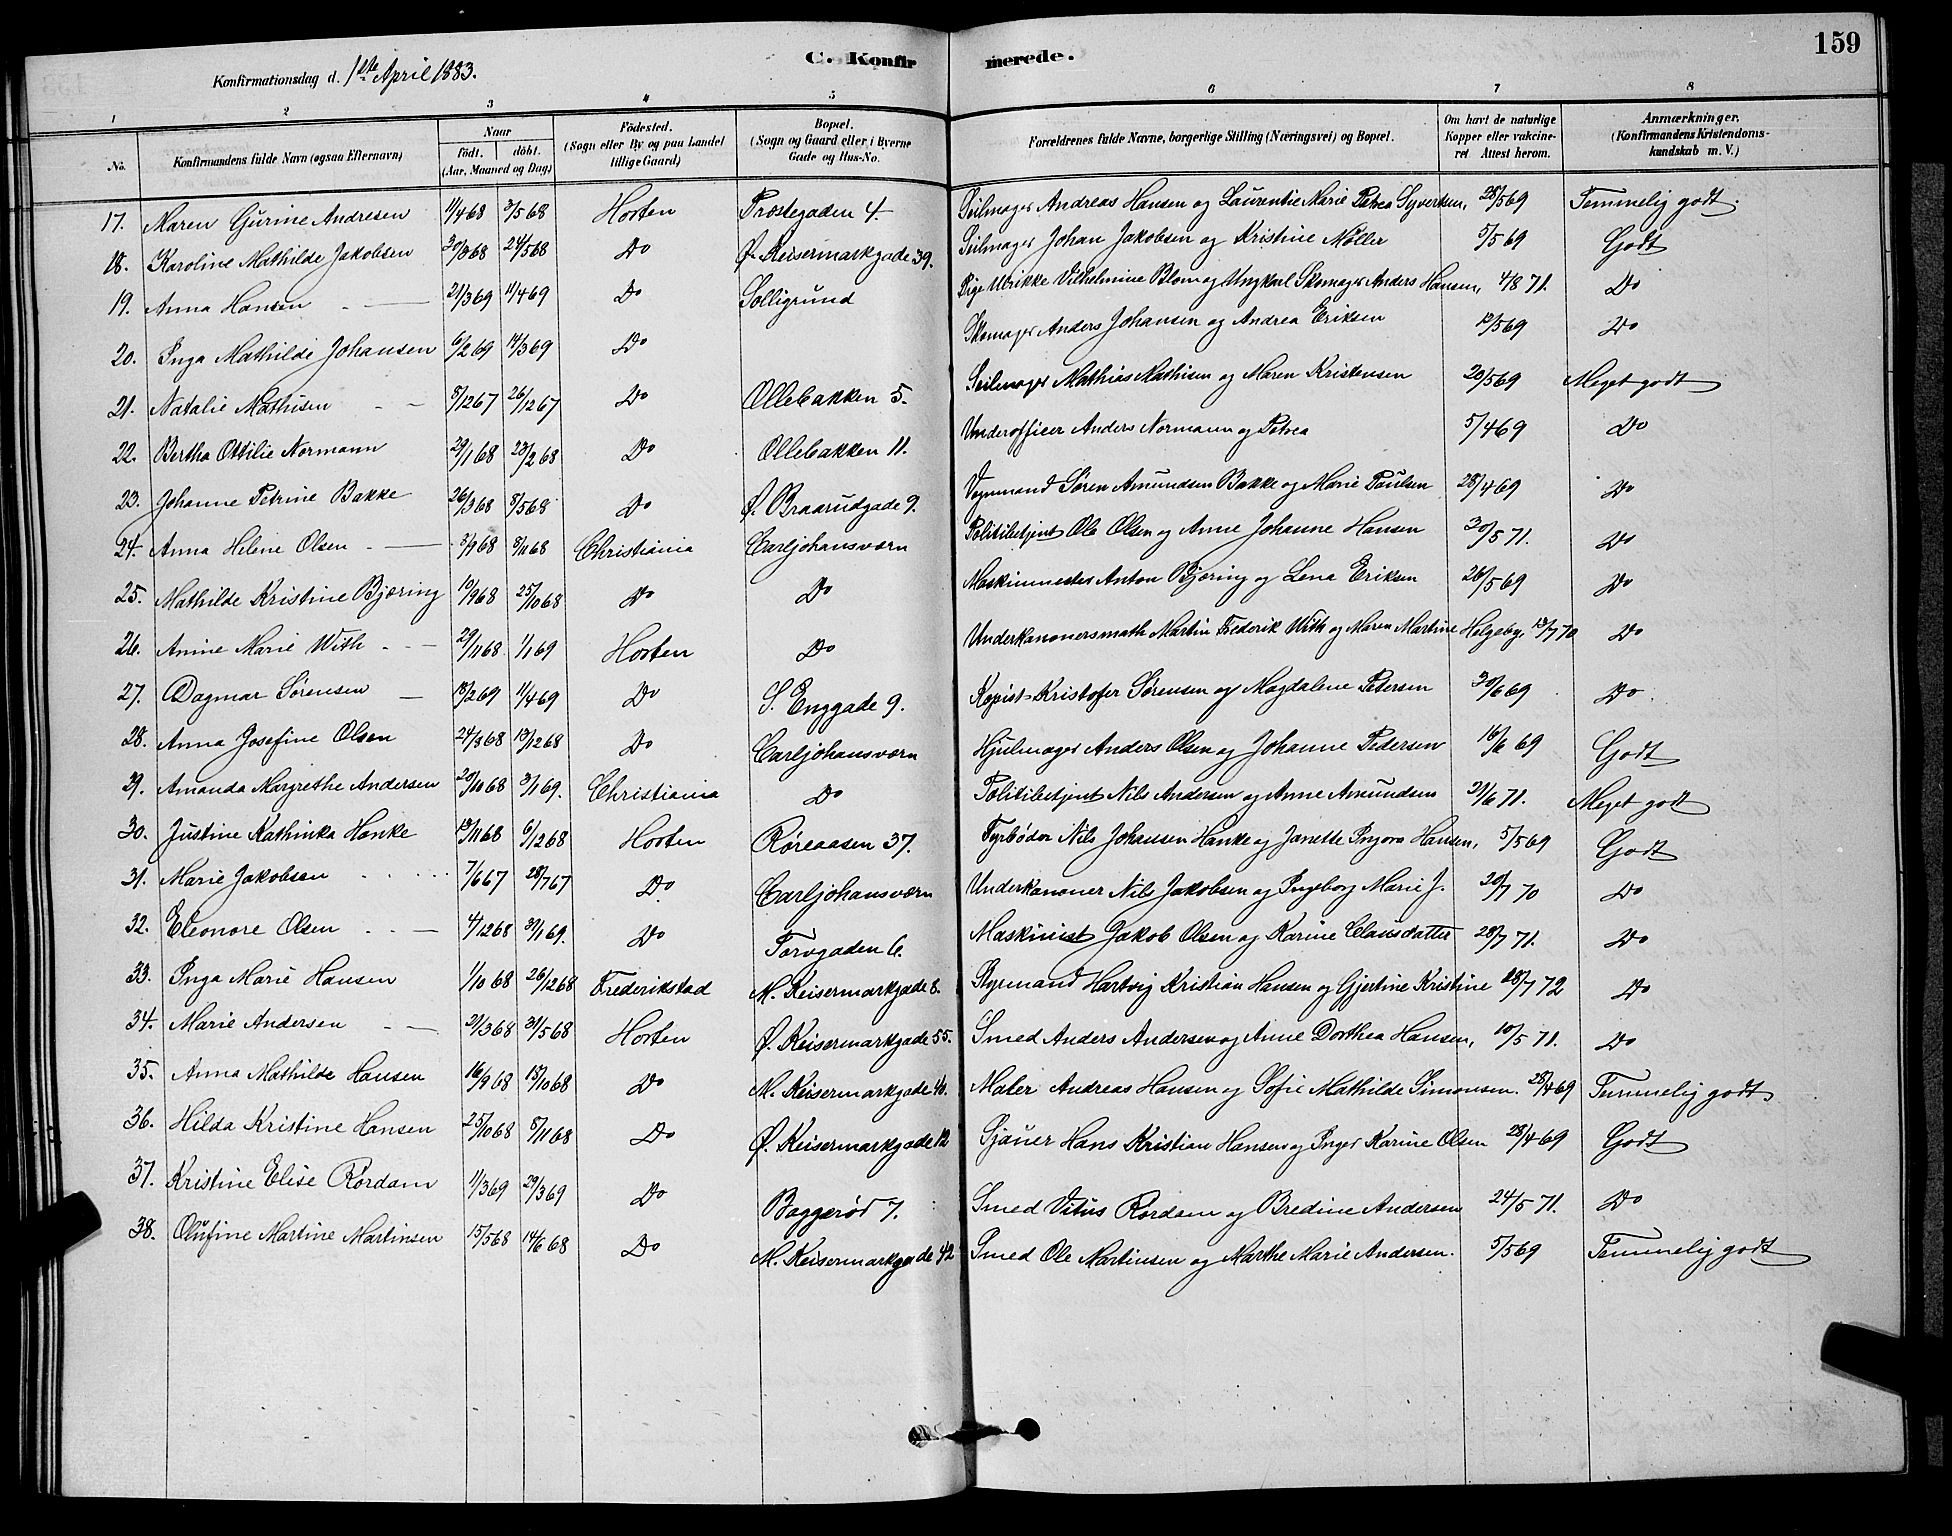 159
C. Konfirmerede.
Konfirmationsdag d. 1ste April 1883.
1 2 3 4 5 6 7 8
No. Konfirmandens fulde Navn (ogsaa Efternavn) Naar født. døbt. (Aar, Maaned og Dag) Fødested. (Sogn eller By og paa Landet tillige Gaard) Bopæl. (Sogn og Gaard eller i Byerne Gade og Hus-No. Forældrenes fulde Navne, borgerlige Stilling (Næringsvei) og Bopæl. Om havt de naturlige Kopper eller vakcineret. Attest herom. Anmærkninger. (Konfirmandens Kristendomskundskab m. V.)
17. Maren Gurine Andresen 1/4 68 3/5 68 Horten Prostegaden 4 Seilmager Andreas Hansen og Laurentie Marie Petrea Syvertsen, 28/5 69 Temmelig godt.
18. Karoline Mathilde Jakobsen 24/5 68 Do Ø. Keisermarkgade 39. Seilmager Johan Jakobsen og Kristine Møller 5/5 69 Godt
19. Anna Hansen 21/3 69 11/4 69 Do Solligrund Pige Ulrikke Vilhelmine Blom og Ungkarl Skomager Anders Hansen, 4/8 71. Do
20. Inga Mathilde Johansen 6/2 69 14/3 69 Do Skomager Anders Johansen og Andrea Eriksen 12/5 69 Do
21. Natalie Mathisen 8/12 67 26/12 67 Do Ollebakken 5. Seilmager Mathias Mathisen og Maren Kristensen 20/5 69 Meget godt
22. Bertha Ottilie Normann 29/1 68 23/2 68 Do Ollebakken 11. Underofficer Anders Normann og Petrea 5/4 69 Do
23. Johanne Petrine Bakke 26/3 68 8/5 68 Do Ø. Braarudgade 9. Vognmand Søren Amundsen Bakke og Marie Paulsen 28/4 69 Do
24. Anna Helene Olsen 3/9 68 8/11 68 Christiania Carljohansværn Politibetjent Ole Olsen og Anne Johanne Hansen 30/5 71. Do
25. Mathilde Kristine Bjøring 10/9 68 25/10 68 Do Do Maskinmester Anton Bjøring og Lena Eriksen 26/5 69 Do
26. Anine Marie With 29/11 68 1/1 69 Horten Do Underkanonersmath Martin Frederik With og Maren Martine Helgeby, 13/7 70 Do
27. Dagmar Sørensen 18/2 69 11/4 69 Do S. Enggade 9. Kopist Kristofer Sørensen og Magdalene Petersen 30/6 69 Do
28. Anna Josefine Olsen 13/12 68 Do Carljohansværn Hjulmager Anders Olsen og Johanne Pedersen 16/6 69 Godt
29. Amanda Margrethe Andersen 20/10 68 3/1 69. Christiania Do Politibetjent Nils Andersen og Anne Amundsen 21/6 71. Meget godt
30. Justine Kathinka Hanke 13/11 68 6/12 68 Horten Røreaasen 37. Fyrbøder Nils Johansen Hanke og Janette Ingora Hansen, 5/5 69 Godt
31. Marie Jakobsen 7/6 67 28/7 67 Do Carljohansværn Underkanoner Nils Jakobsen og Ingeborg Marie J. 20/7 70 Do
32. Eleonore Olsen 4/12 68 31/1 69. Do Torvgaden 6. Maskinist Jakob Olsen og Karine Clausdatter 28/7 71. Do
33. Inga Marie Hansen 1/10 68 26/12 68 Frederikstad M. Keisermarkgade 8. Styrmand Hartvig Kristian Hansen og Gjertine Kristine 28/7 72 Do
34. Marie Andersen 21/3 68 31/5 68 Horten Ø. Keisermarkgade 55. Smed Anders Andersen og Anne Dorthea Hansen, 10/5 71. Do
35. Anna Mathilde Hansen 16/9 68 18/10 68 Do M. Keisermarkgade 40. Maler Andreas Hansen og Sofie Mathilde Simonsen. 28/4 69 Temmelig godt
36. Hilda Kristine Hansen 25/10 68 8/11 68 Do Ø. Keisermarkgade 12 Sjauer Hans Kristian Hansen og Inger Karine Olsen 28/4 69 Godt
37. Kristine Elise Rørdam 11/3 69 29/3 69 Do Baggerød 7. Smed Vitus Rørdam og Bredine Andersen 24/5 71. Do
38. Olufine Martine Martinsen 15/5 68 14/6 68 Do M. Keisermarkgade 42 Smed Ole Martinsen og Marthe Marie Andersen. 5/5 69 Temmelig godt